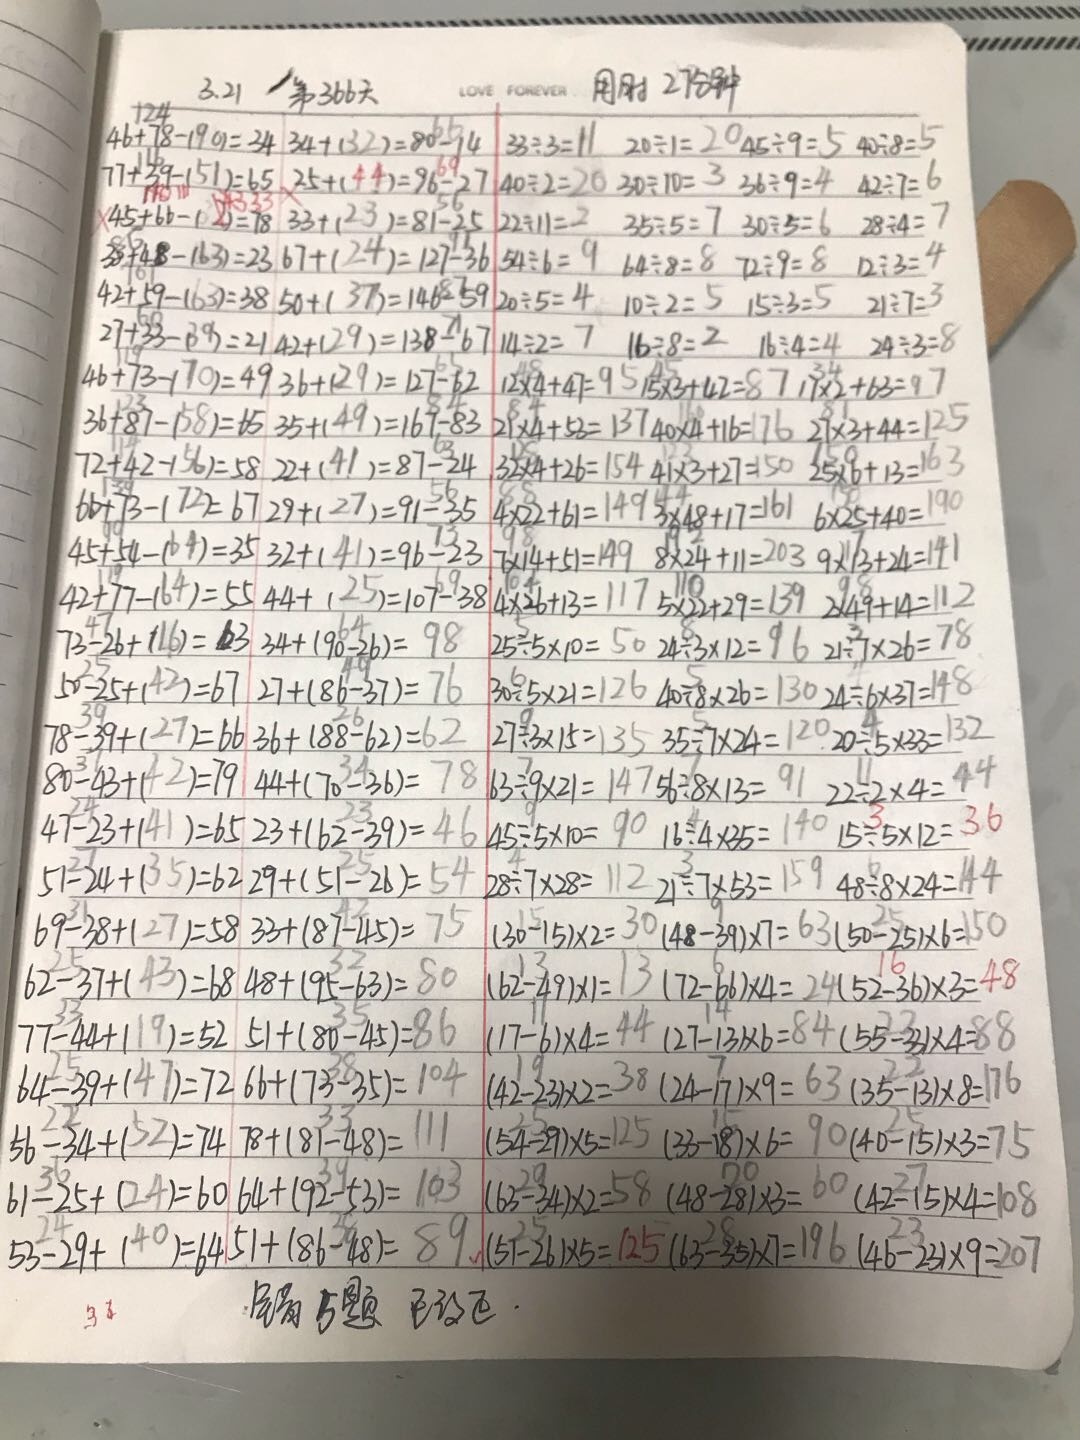 3.21 第366天 LOVE FOREVER 用时 27分钟
46+78-(90)=34 34+(32)=80-14 33÷3=11 20÷1=20 45÷9=5 40÷8=5
77+39-(51)=65 25+(44)=96-27 40÷2=20 30÷10=3 36÷9=4 42÷7=6
45+66-( )=78 33+(23)=81-25 22÷11=2 35÷5=7 30÷5=6 28÷4=7
38+48-(63)=23 67+(24)=127-36 54÷6=9 64÷8=8 72÷9=8 12÷3=4
42+59-(63)=38 50+(37)=146-59 20÷5=4 10÷2=5 15÷3=5 21÷7=3
27+33-(39)=21 42+(29)=138-67 14÷2=7 16÷8=2 16÷4=4 24÷3=8
46+73-(70)=49 36+(29)=127-62 12×4+47=95 15×3+42=87 17×2+63=97
36+87-(58)=65 35+(49)=167-83 21×4+53=137 40×4+16=176 27×3+44=125
72+42-(56)=58 22+(41)=87-24 32×4+26=154 41×3+27=150 25×6+13=163
66+73-(72)=67 29+(27)=91-35 4×22+61=149 3×48+17=161 6×25+40=190
45+54-(64)=35 32+(41)=96-23 7×14+51=149 8×24+11=203 9×13+24=141
42+77-(64)=55 44+(25)=107-38 4×26+13=117 5×22+29=139 2×49+14=112
73-26+(16)=63 34+(90-26)=98 25÷5×10=50 24÷3×12=96 21÷7×26=78
50-25+(42)=67 27+(86-37)=76 30÷5×21=126 40÷8×26=130 24÷6×37=148
78-39+(27)=66 36+(88-62)=62 27÷3×15=135 35÷7×24=120 20÷5×33=132
80-43+(42)=79 44+(70-36)=78 63÷9×21=147 56÷8×13=91 22÷2×4=44
47-23+(41)=65 23+(62-39)=46 45÷5×10=90 16÷4×35=140 15÷5×12=36
51-24+(35)=62 29+(51-26)=54 28÷7×28=112 21÷7×53=159 48÷8×24=144
69-38+(27)=58 33+(87-45)=75 (30-15)×2=30 (48-39)×7=63 (50-25)×6=150
62-37+(43)=68 48+(95-63)=80 (62-49)×1=13 (72-66)×4=24 (52-36)×3=48
77-44+(19)=52 51+(80-45)=86 (17-6)×4=44 (27-13)×6=84 (55-33)×4=88
64-39+(47)=72 66+(73-35)=104 (42-23)×2=38 (24-17)×9=63 (35-13)×8=176
56-34+(52)=74 78+(81-48)=111 (54-29)×5=125 (33-18)×6=90 (40-15)×3=75
61-25+(24)=60 64+(92-53)=103 (63-34)×2=58 (48-28)×3=60 (42-15)×4=108
53-29+(40)=64 51+(86-48)=89 (51-26)×5=125 (63-35)×7=196 (46-23)×9=207
5题 已改正.